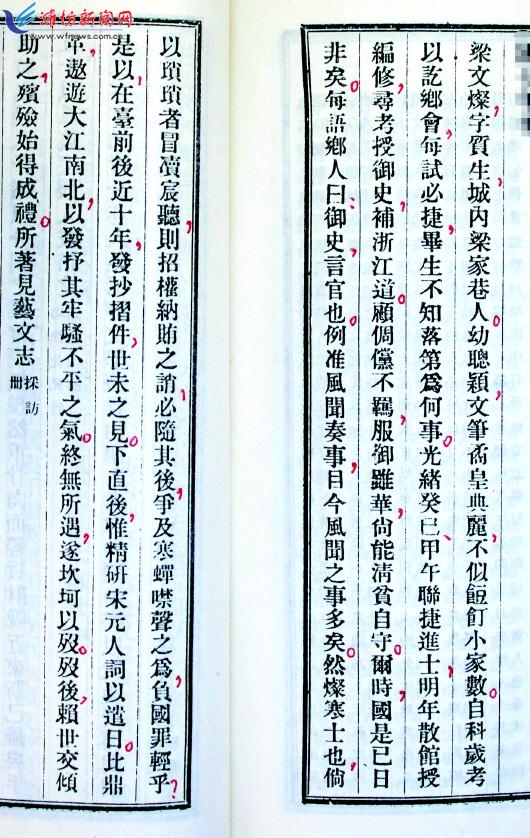 潍坊新闻网
www.wfnews.com.cn
梁文燦，字質生，城內梁家巷人。幼聰穎，文筆矞皇典麗，不似餖飣小家數。自科歲考
以訖鄉會，每試必捷，畢生不知落第爲何事。光緒癸巳、甲午聯捷進士，明年散館授
編修，尋考授御史，補浙江道。顧倜儻不羈，服御雖華，尙能淸貧自守。爾時國是已日
非矣。每語鄉人曰：御史，言官也。例准風聞奏事，目今風聞之事多矣。然燦寒士也，倘
以瑣瑣者冒瀆宸聽，則招權納賄之誚，必隨其後，爭及寒蟬噤聲之爲，負國罪輕乎？
是以在臺，前後近十年，發抄摺件，世未之見。下直後，惟精硏宋元人詞以遣日。比鼎
革，遨遊大江南北，以發抒其牢騷不平之氣。終無所遇，遂坎坷以歿。歿後，賴世交傾
助之，殯殮始得成禮。所著見藝文志
採訪
冊